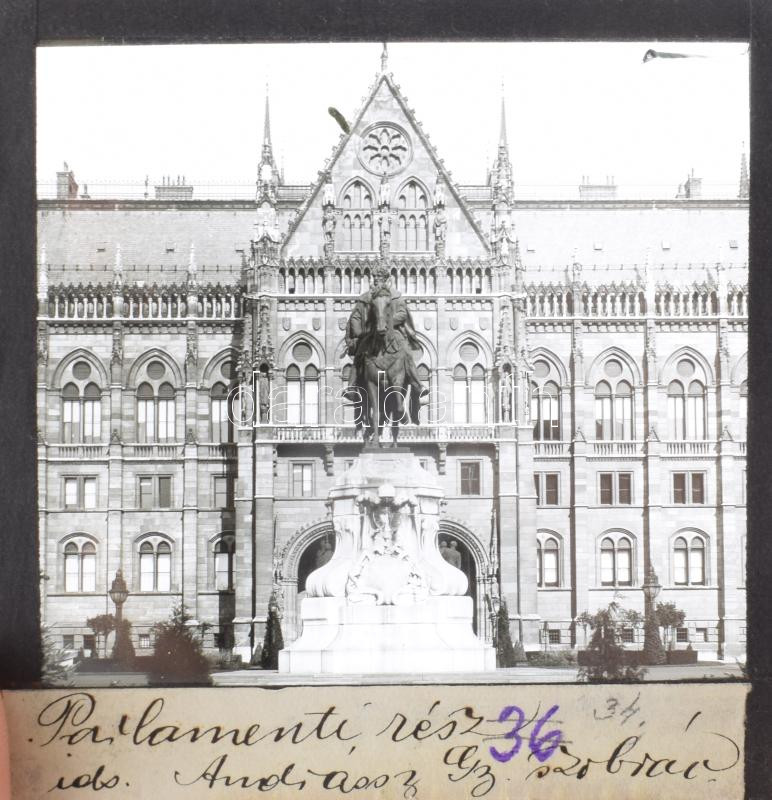 darabanth
Parlamenti rész 36 34.
ids. Andrássy Gy. szobrác.